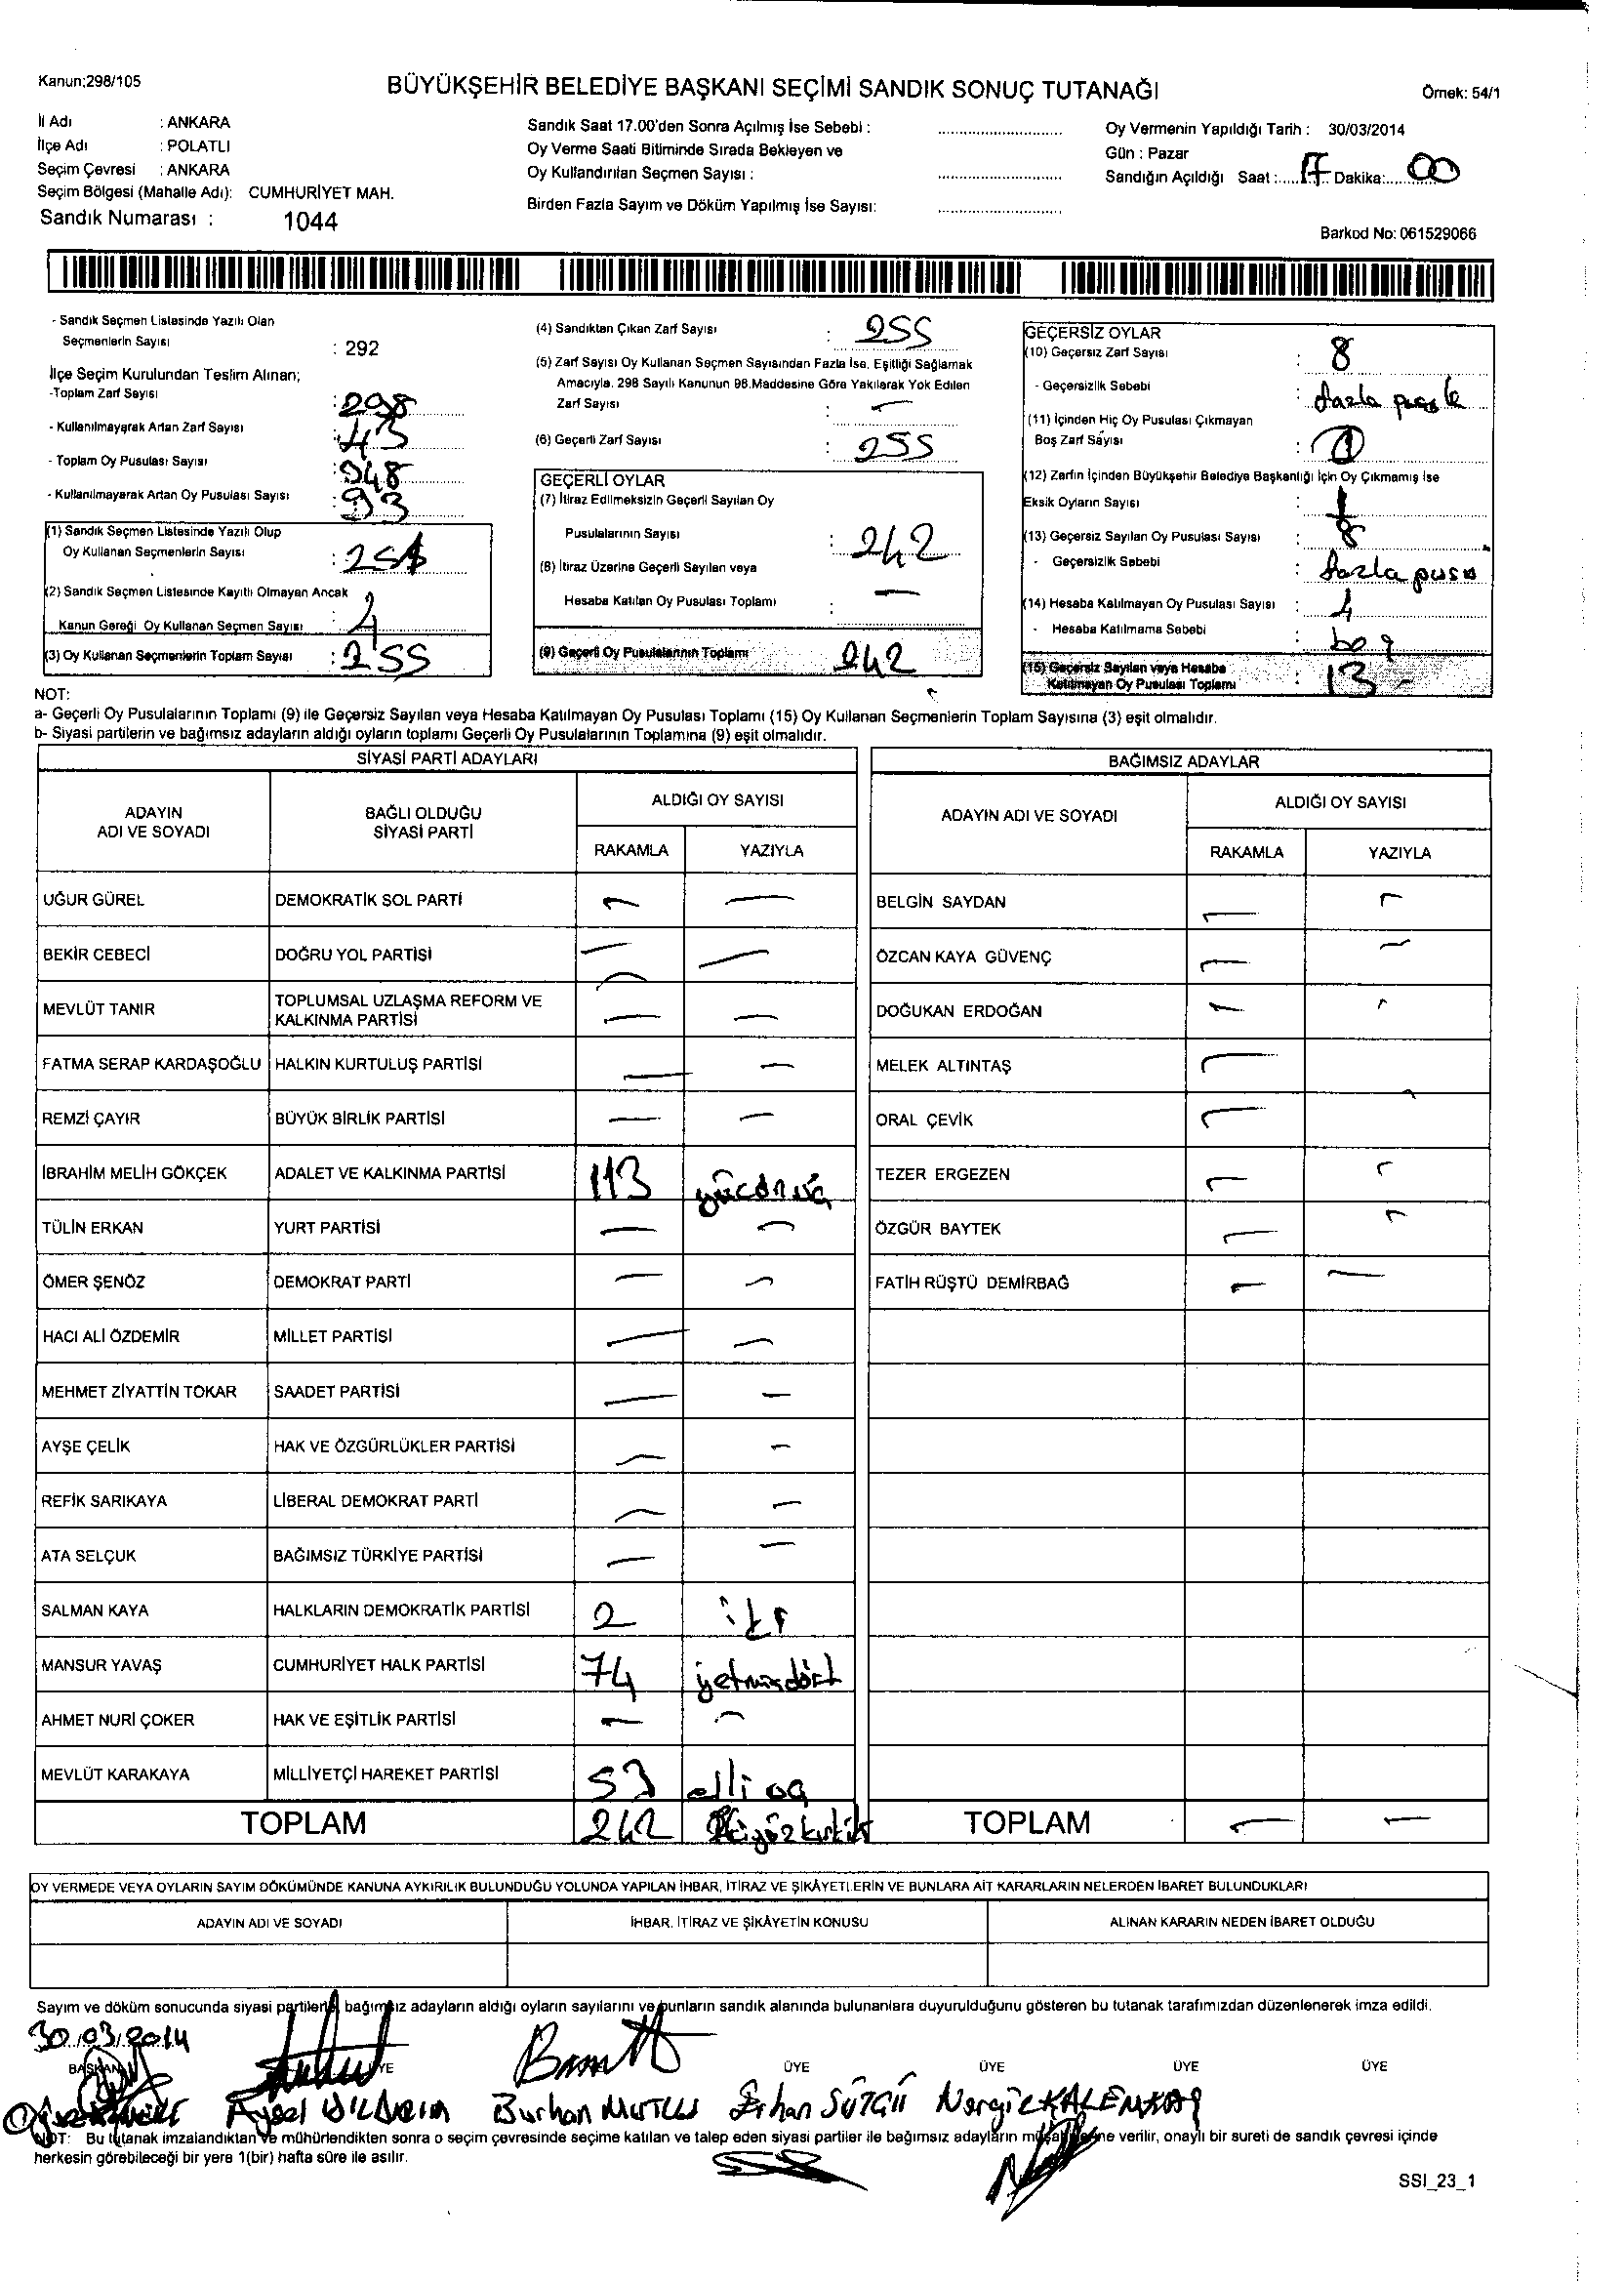 Kanun:298/105
BÜYÜKŞEHİR BELEDİYE BAŞKANI SEÇİMİ SANDIK SONUÇ TUTANAĞI
Örnek: 54/1
İl Adı : ANKARA
İlçe Adı : POLATLI
Seçim Çevresi : ANKARA
Seçim Bölgesi (Mahalle Adı): CUMHURİYET MAH.
Sandık Numarası : 1044
Sandık Saat 17.00'den Sonra Açılmış İse Sebebi :
Oy Verme Saati Bitiminde Sırada Bekleyen ve
Oy Kullandırılan Seçmen Sayısı :
Birden Fazla Sayım ve Döküm Yapılmış İse Sayısı:
Oy Vermenin Yapıldığı Tarih : 30/03/2014
Gün : Pazar
Sandığın Açıldığı Saat : 17 Dakika: 00
Barkod No: 061529066
- Sandık Seçmen Listesinde Yazılı Olan
Seçmenlerin Sayısı : 292
İlçe Seçim Kurulundan Teslim Alınan;
-Toplam Zarf Sayısı : 298
- Kullanılmayarak Artan Zarf Sayısı : 43
- Toplam Oy Pusulası Sayısı : 348
- Kullanılmayarak Artan Oy Pusulası Sayısı : 93
(1) Sandık Seçmen Listesinde Yazılı Olup
Oy Kullanan Seçmenlerin Sayısı :
(2) Sandık Seçmen Listesinde Kayıtlı Olmayan Ancak
Kanun Gereği Oy Kullanan Seçmen Sayısı :
(3) Oy Kullanan Seçmenlerin Toplam Sayısı : 255
(4) Sandıktan Çıkan Zarf Sayısı : 255
(5) Zarf Sayısı Oy Kullanan Seçmen Sayısından Fazla İse, Eşitliği Sağlamak
Amacıyla, 298 Sayılı Kanunun 98.Maddesine Göre Yakılarak Yok Edilen
Zarf Sayısı : -
(6) Geçerli Zarf Sayısı : 255
GEÇERLİ OYLAR
(7) İtiraz Edilmeksizin Geçerli Sayılan Oy
Pusulalarının Sayısı : 242
(8) İtiraz Üzerine Geçerli Sayılan veya
Hesaba Katılan Oy Pusulası Toplamı : -
(9) Geçerli Oy Pusulalarının Toplamı 242
GEÇERSİZ OYLAR
(10) Geçersiz Zarf Sayısı : 8
- Geçersizlik Sebebi : fazla
(11) İçinden Hiç Oy Pusulası Çıkmayan
Boş Zarf Sayısı :
(12) Zarfın İçinden Büyükşehir Belediye Başkanlığı İçin Oy Çıkmamış İse
Eksik Oyların Sayısı :
(13) Geçersiz Sayılan Oy Pusulası Sayısı : 8
- Geçersizlik Sebebi : fazla
(14) Hesaba Katılmayan Oy Pusulası Sayısı :
- Hesaba Katılmama Sebebi : boş
(15) Geçersiz Sayılan veya Hesaba
Katılmayan Oy Pusulası Toplamı : 13 -
NOT:
a- Geçerli Oy Pusulalarının Toplamı (9) ile Geçersiz Sayılan veya Hesaba Katılmayan Oy Pusulası Toplamı (15) Oy Kullanan Seçmenlerin Toplam Sayısına (3) eşit olmalıdır.
b- Siyasi partilerin ve bağımsız adayların aldığı oyların toplamı Geçerli Oy Pusulalarının Toplamına (9) eşit olmalıdır.
SİYASİ PARTİ ADAYLARI
ADAYIN
ADI VE SOYADI
BAĞLI OLDUĞU
SİYASİ PARTİ
ALDIĞI OY SAYISI
RAKAMLA YAZIYLA
UĞUR GÜREL DEMOKRATİK SOL PARTİ - -
BEKİR CEBECİ DOĞRU YOL PARTİSİ - -
MEVLÜT TANIR TOPLUMSAL UZLAŞMA REFORM VE
KALKINMA PARTİSİ - -
FATMA SERAP KARDAŞOĞLU HALKIN KURTULUŞ PARTİSİ - -
REMZİ ÇAYIR BÜYÜK BİRLİK PARTİSİ - -
İBRAHİM MELİH GÖKÇEK ADALET VE KALKINMA PARTİSİ 113
TÜLİN ERKAN YURT PARTİSİ - -
ÖMER ŞENÖZ DEMOKRAT PARTİ - -
HACI ALİ ÖZDEMİR MİLLET PARTİSİ - -
MEHMET ZİYATTİN TOKAR SAADET PARTİSİ - -
AYŞE ÇELİK HAK VE ÖZGÜRLÜKLER PARTİSİ - -
REFİK SARIKAYA LİBERAL DEMOKRAT PARTİ - -
ATA SELÇUK BAĞIMSIZ TÜRKİYE PARTİSİ - -
SALMAN KAYA HALKLARIN DEMOKRATİK PARTİSİ 2 iki
MANSUR YAVAŞ CUMHURİYET HALK PARTİSİ 74 yetmişdört
AHMET NURİ ÇOKER HAK VE EŞİTLİK PARTİSİ - -
MEVLÜT KARAKAYA MİLLİYETÇİ HAREKET PARTİSİ 53 elli üç
TOPLAM 242 ikiyüzkırkiki
BAĞIMSIZ ADAYLAR
ADAYIN ADI VE SOYADI
ALDIĞI OY SAYISI
RAKAMLA YAZIYLA
BELGİN SAYDAN - -
ÖZCAN KAYA GÜVENÇ - -
DOĞUKAN ERDOĞAN - -
MELEK ALTINTAŞ - -
ORAL ÇEVİK -
TEZER ERGEZEN - -
ÖZGÜR BAYTEK - -
FATİH RÜŞTÜ DEMİRBAĞ - -
TOPLAM - -
OY VERMEDE VEYA OYLARIN SAYIM DÖKÜMÜNDE KANUNA AYKIRILIK BULUNDUĞU YOLUNDA YAPILAN İHBAR, İTİRAZ VE ŞİKÂYETLERİN VE BUNLARA AİT KARARLARIN NELERDEN İBARET BULUNDUKLARI
ADAYIN ADI VE SOYADI
İHBAR, İTİRAZ VE ŞİKÂYETİN KONUSU
ALINAN KARARIN NEDEN İBARET OLDUĞU
Sayım ve döküm sonucunda siyasi partilerin, bağımsız adayların aldığı oyların sayılarını ve bunların sandık alanında bulunanlara duyurulduğunu gösteren bu tutanak tarafımızdan düzenlenerek imza edildi.
30.03.2014
BAŞKAN ÜYE ÜYE ÜYE ÜYE ÜYE
Aysel YILDIRIM Burhan MUTLU Erhan SÜTÇÜ
NOT: Bu tutanak imzalandıktan ve mühürlendikten sonra o seçim çevresinde seçime katılan ve talep eden siyasi partiler ile bağımsız adayların müşahitlerine verilir, onaylı bir sureti de sandık çevresi içinde
herkesin görebileceği bir yere 1(bir) hafta süre ile asılır.
SSI_23_1